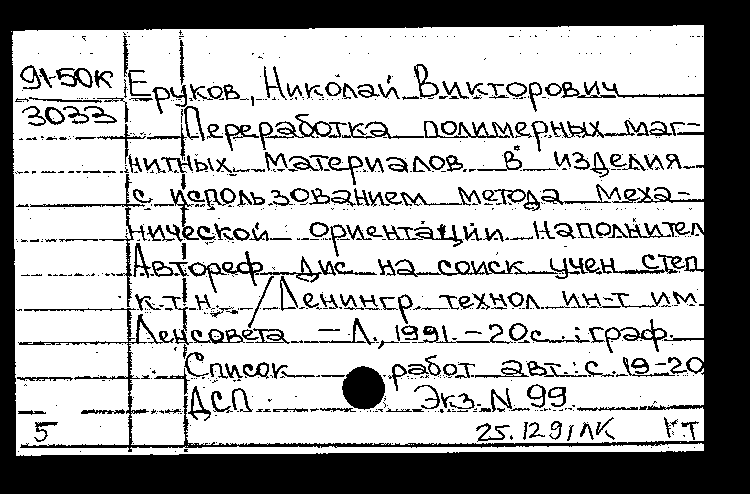 91-50К Еруков, Николай Викторович
3033 Переработка полимерных маг-
нитных материалов в изделия
с использованием метода меха-
нической ориентации наполнител
Автореф. дис на соиск учен степ
к.т.н. / Ленингр технол ин-т им
Ленсовета – Л., 1991. – 20с. : граф.
Список работ авт.: с. 19-20
ДСП Экз. N 99.
5 25.12.91 ЛК КТ